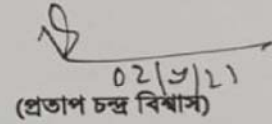 02/৮/21
(প্রতাপ চন্দ্র বিশ্বাস)